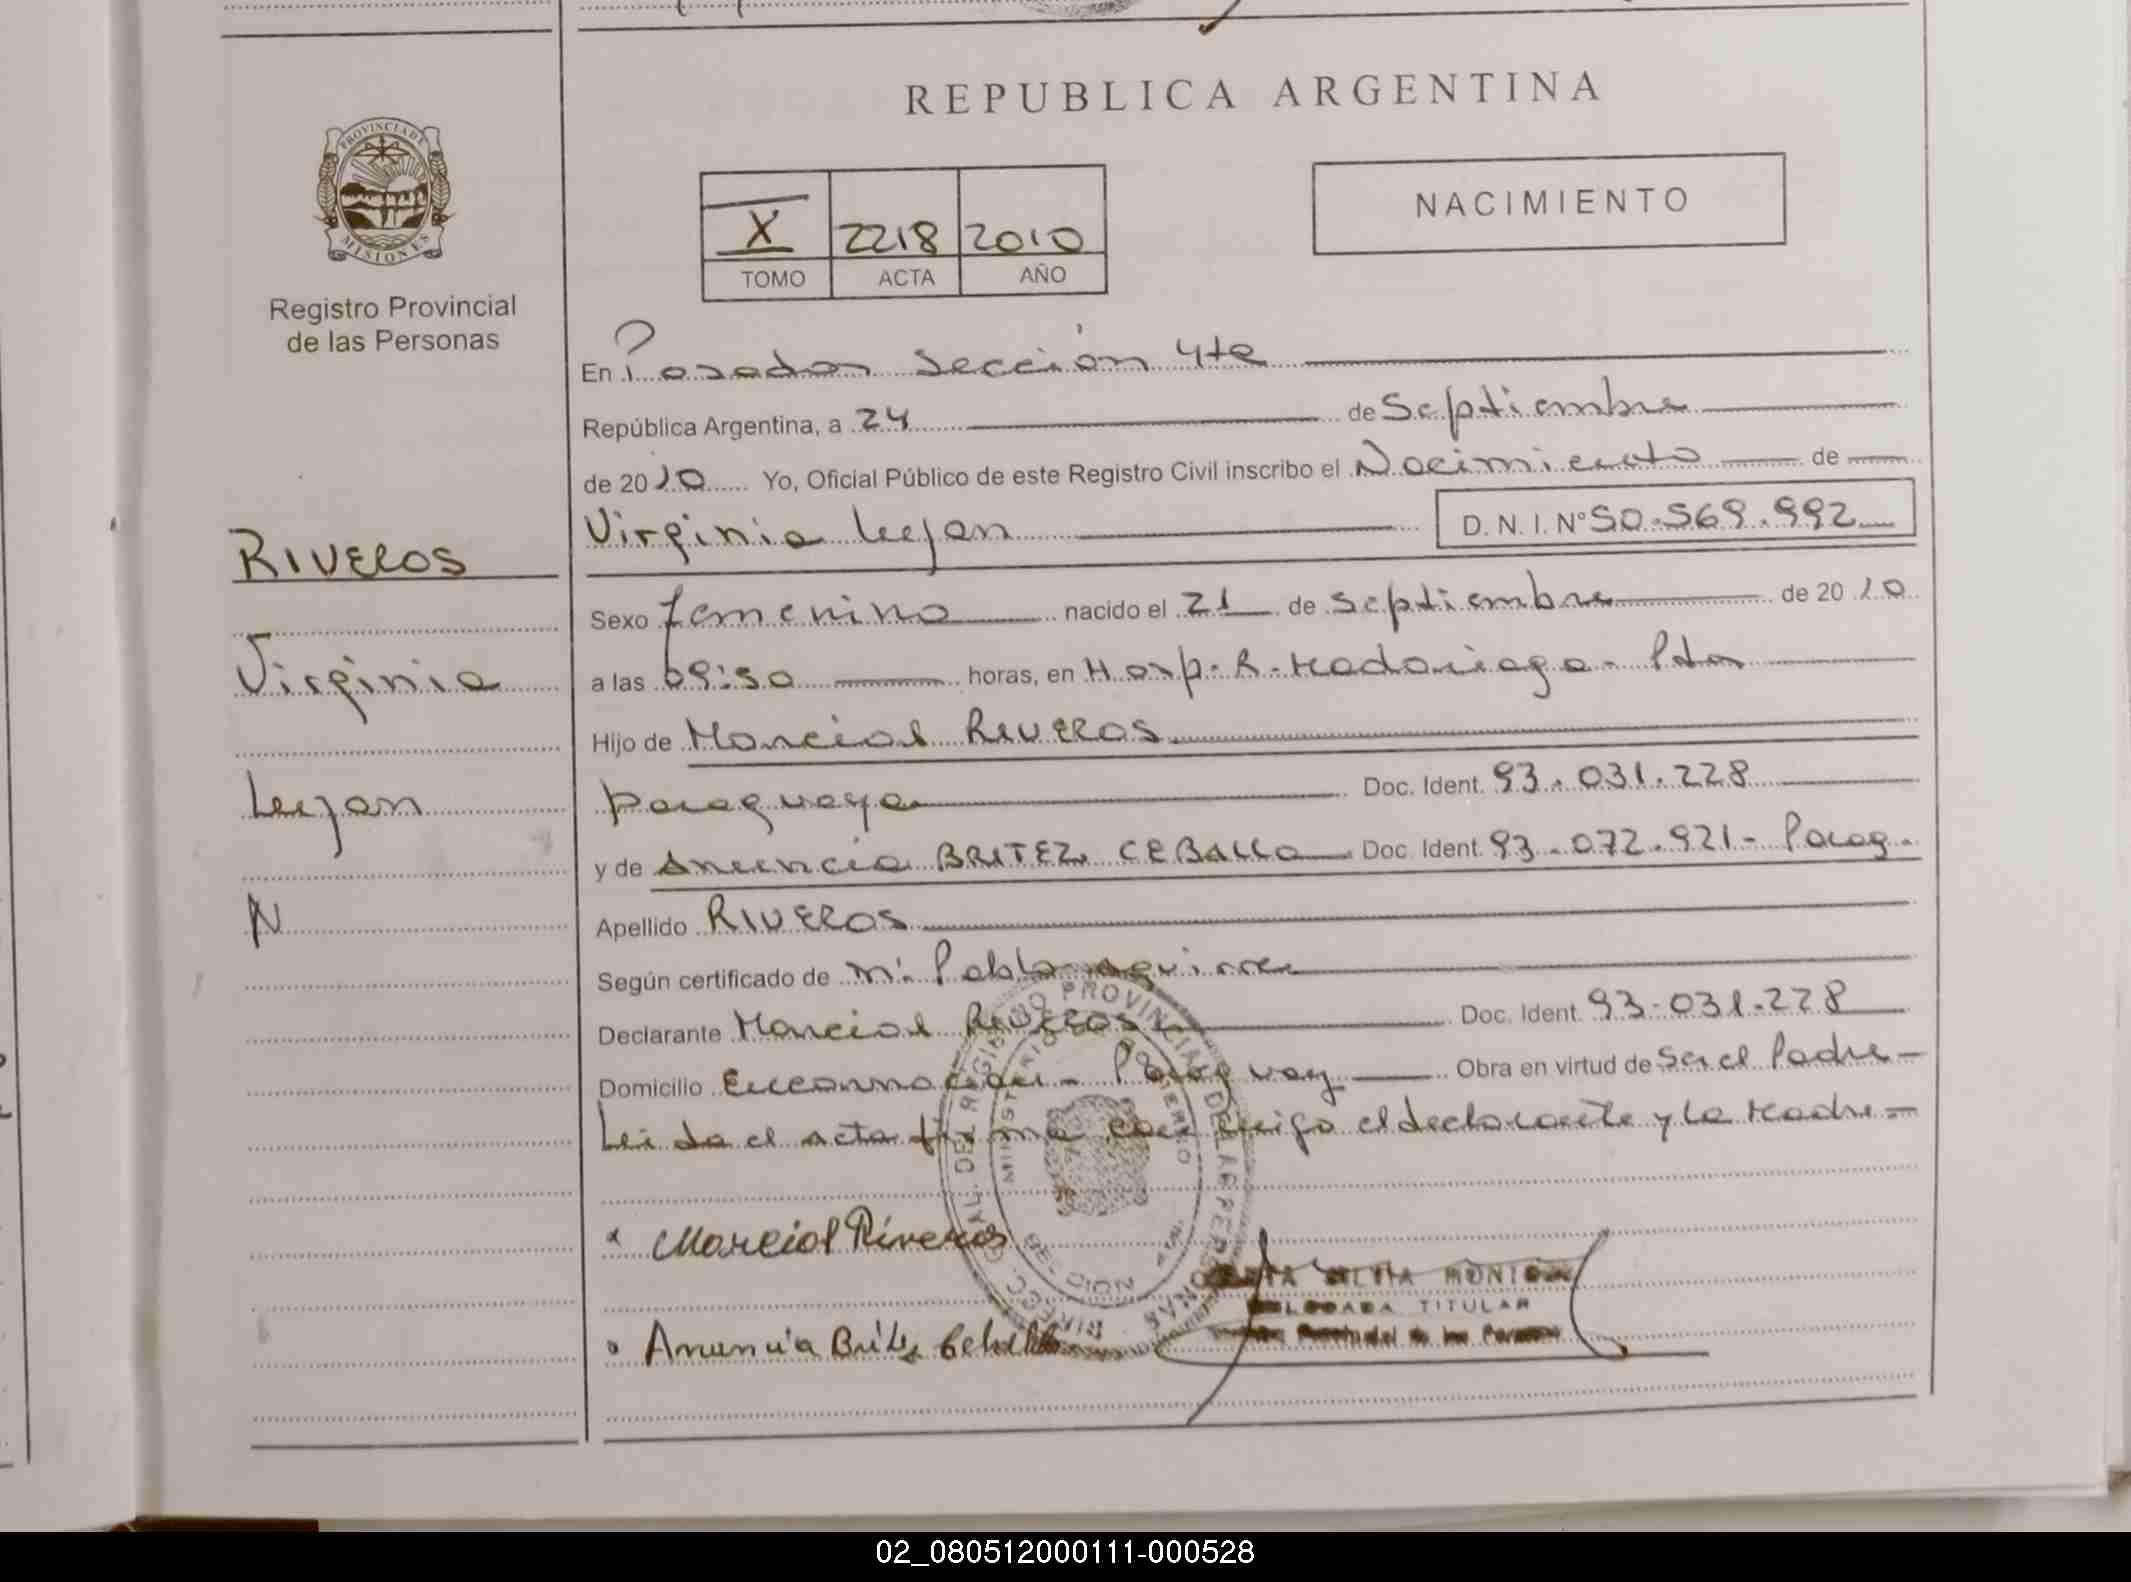 REPUBLICA ARGENTINA
PROVINCIA DE
MISIONES
Registro Provincial
de las Personas
X 2218 2010
TOMO ACTA AÑO
NACIMIENTO
En Posadas Sección 4ta
República Argentina, a 24 de Septiembre
de 2010 Yo, Oficial Público de este Registro Civil inscribo el Nacimiento de
Virginia Lujan D. N. I. N° 50.569.992
RIVEROS
Virginia
Lujan
N
Sexo femenino nacido el 21 de septiembre de 2010
a las 09:50 horas, en Hosp. R. Madariaga - Pdas
Hijo de Marcial RIVEROS
paraguaya Doc. Ident. 93.031.228
y de Anuncia BRITEZ CEBALLO Doc. Ident. 93.072.921 - Parag.
Apellido RIVEROS
Según certificado de Mº Pabla Aguirre
Declarante Marcial RIVEROS Doc. Ident. 93.031.228
Domicilio Encarnación - Paraguay Obra en virtud de Ser el Padre
Leida el acta firma conmigo el declarante y la Madre
Marcial Riveros
SILVIA MONICA
DELEGADA TITULAR
Anuncia Britez Ceballo
02_080512000111-000528